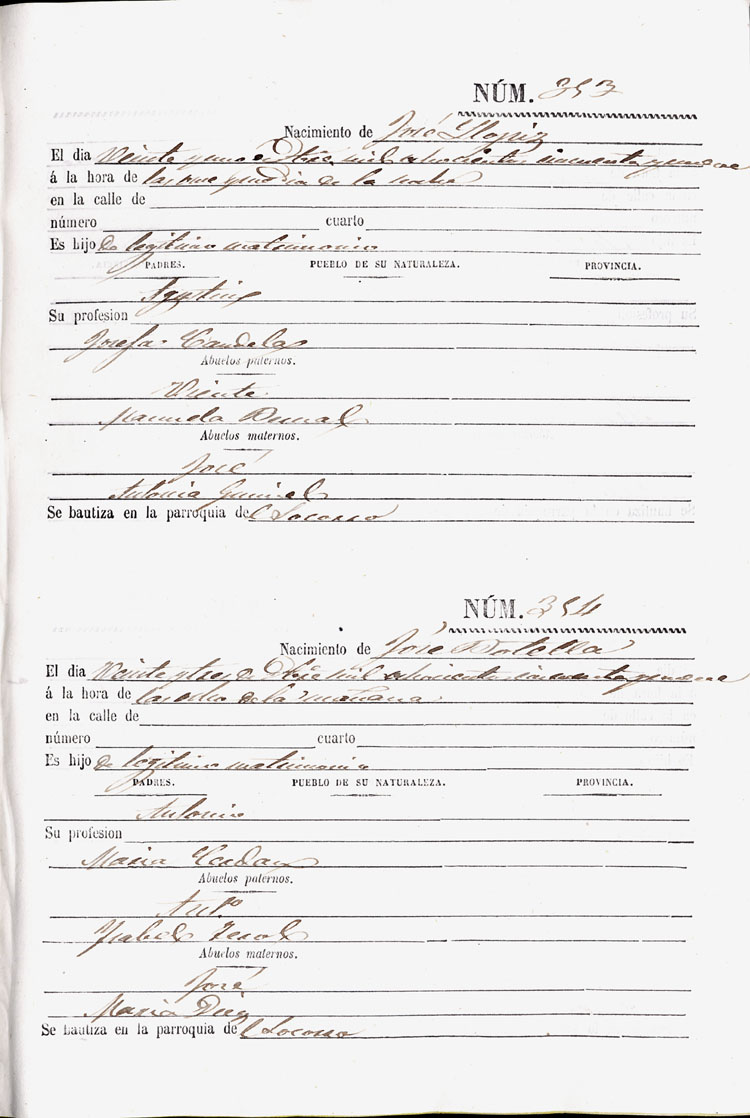 NÚM. 353
Nacimiento de José Llopiz
El dia Veinte y uno de Dbre mil ochocientos cincuenta y nueve
á la hora de las once y media de la noche
en la calle de
número cuarto
Es hijo de legitimo matrimonio
PADRES. PUEBLO DE SU NATURALEZA. PROVINCIA.
Agustin
Su profesion
Josefa Candela
Abuelos paternos.
Vicente
Manuela
Abuelos maternos.
José
Antonia
Se bautiza en la parroquia del Socorro
NÚM. 354
Nacimiento de José Botella
El dia Veinte y tres de Dbre mil ochocientos cincuenta y nueve
á la hora de las ocho de la mañana
en la calle de
número cuarto
Es hijo de legitimo matrimonio
PADRES. PUEBLO DE SU NATURALEZA. PROVINCIA.
Antonio
Su profesion
Maria
Abuelos paternos.
Antº
Isabel Terol
Abuelos maternos.
José
Maria Diez
Se bautiza en la parroquia del Socorro